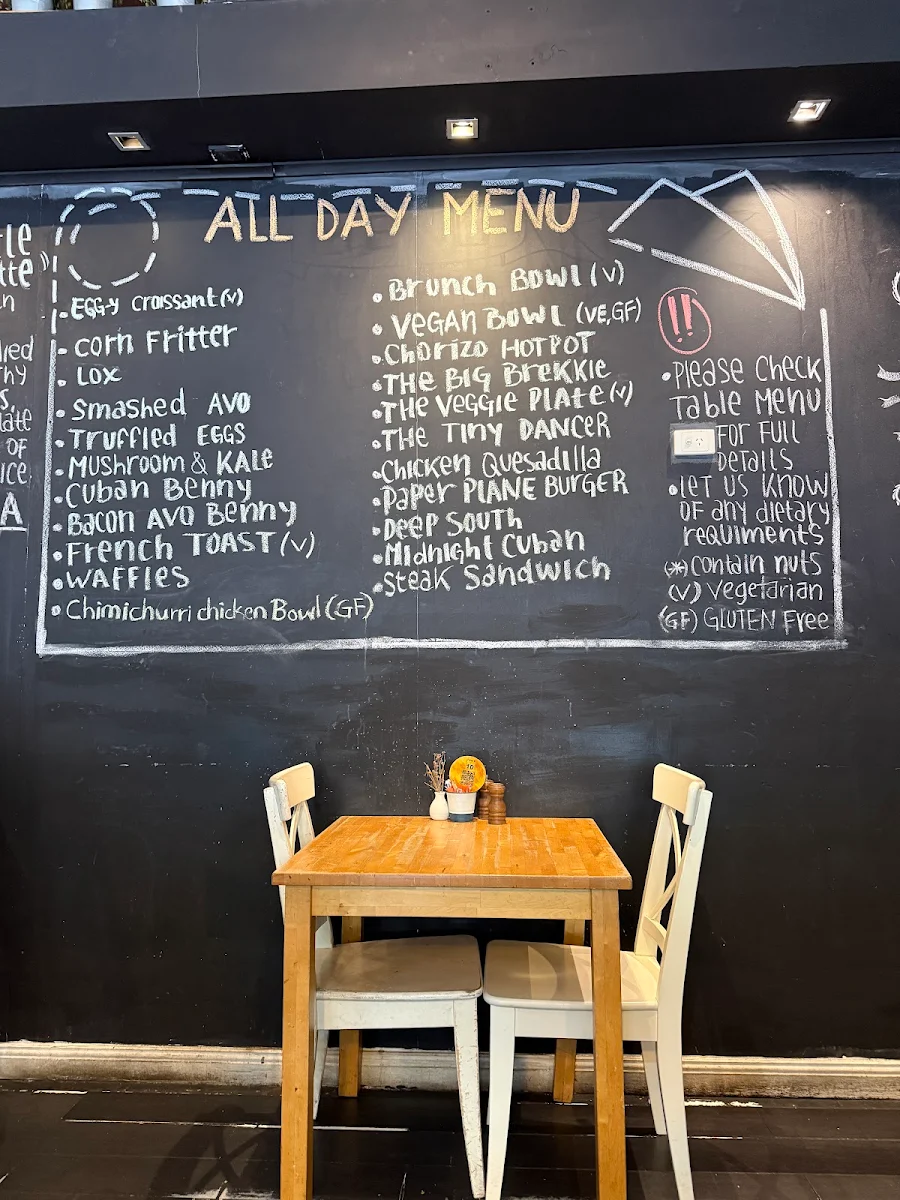 ALL DAY MENU
EGG-y Croissant (v)
Corn Fritter
LOX
Smashed AVO
Truffled EGGS
Mushroom & KALE
Cuban Benny
Bacon AVO Benny
French TOAST (v)
WAFFLES
Chimichurri chicken Bowl (GF)
Brunch Bowl (v)
VEGAN BOWL (VE,GF)
Chorizo HOTPOT
THE BIG BreKKIE
THE VEGGIE PLATE (v)
THE TINY DANCER
Chicken Quesadilla
PAPER PLANE BURGER
DEEP SOUTH
Midnight Cuban
Steak Sandwich
!!
Please Check
Table Menu
FOR FULL
DETAILS
Let us know
OF any dietary
requiments
(*) contain nuts
(V) Vegetarian
(GF) GLUTEN Free
OF
A
10